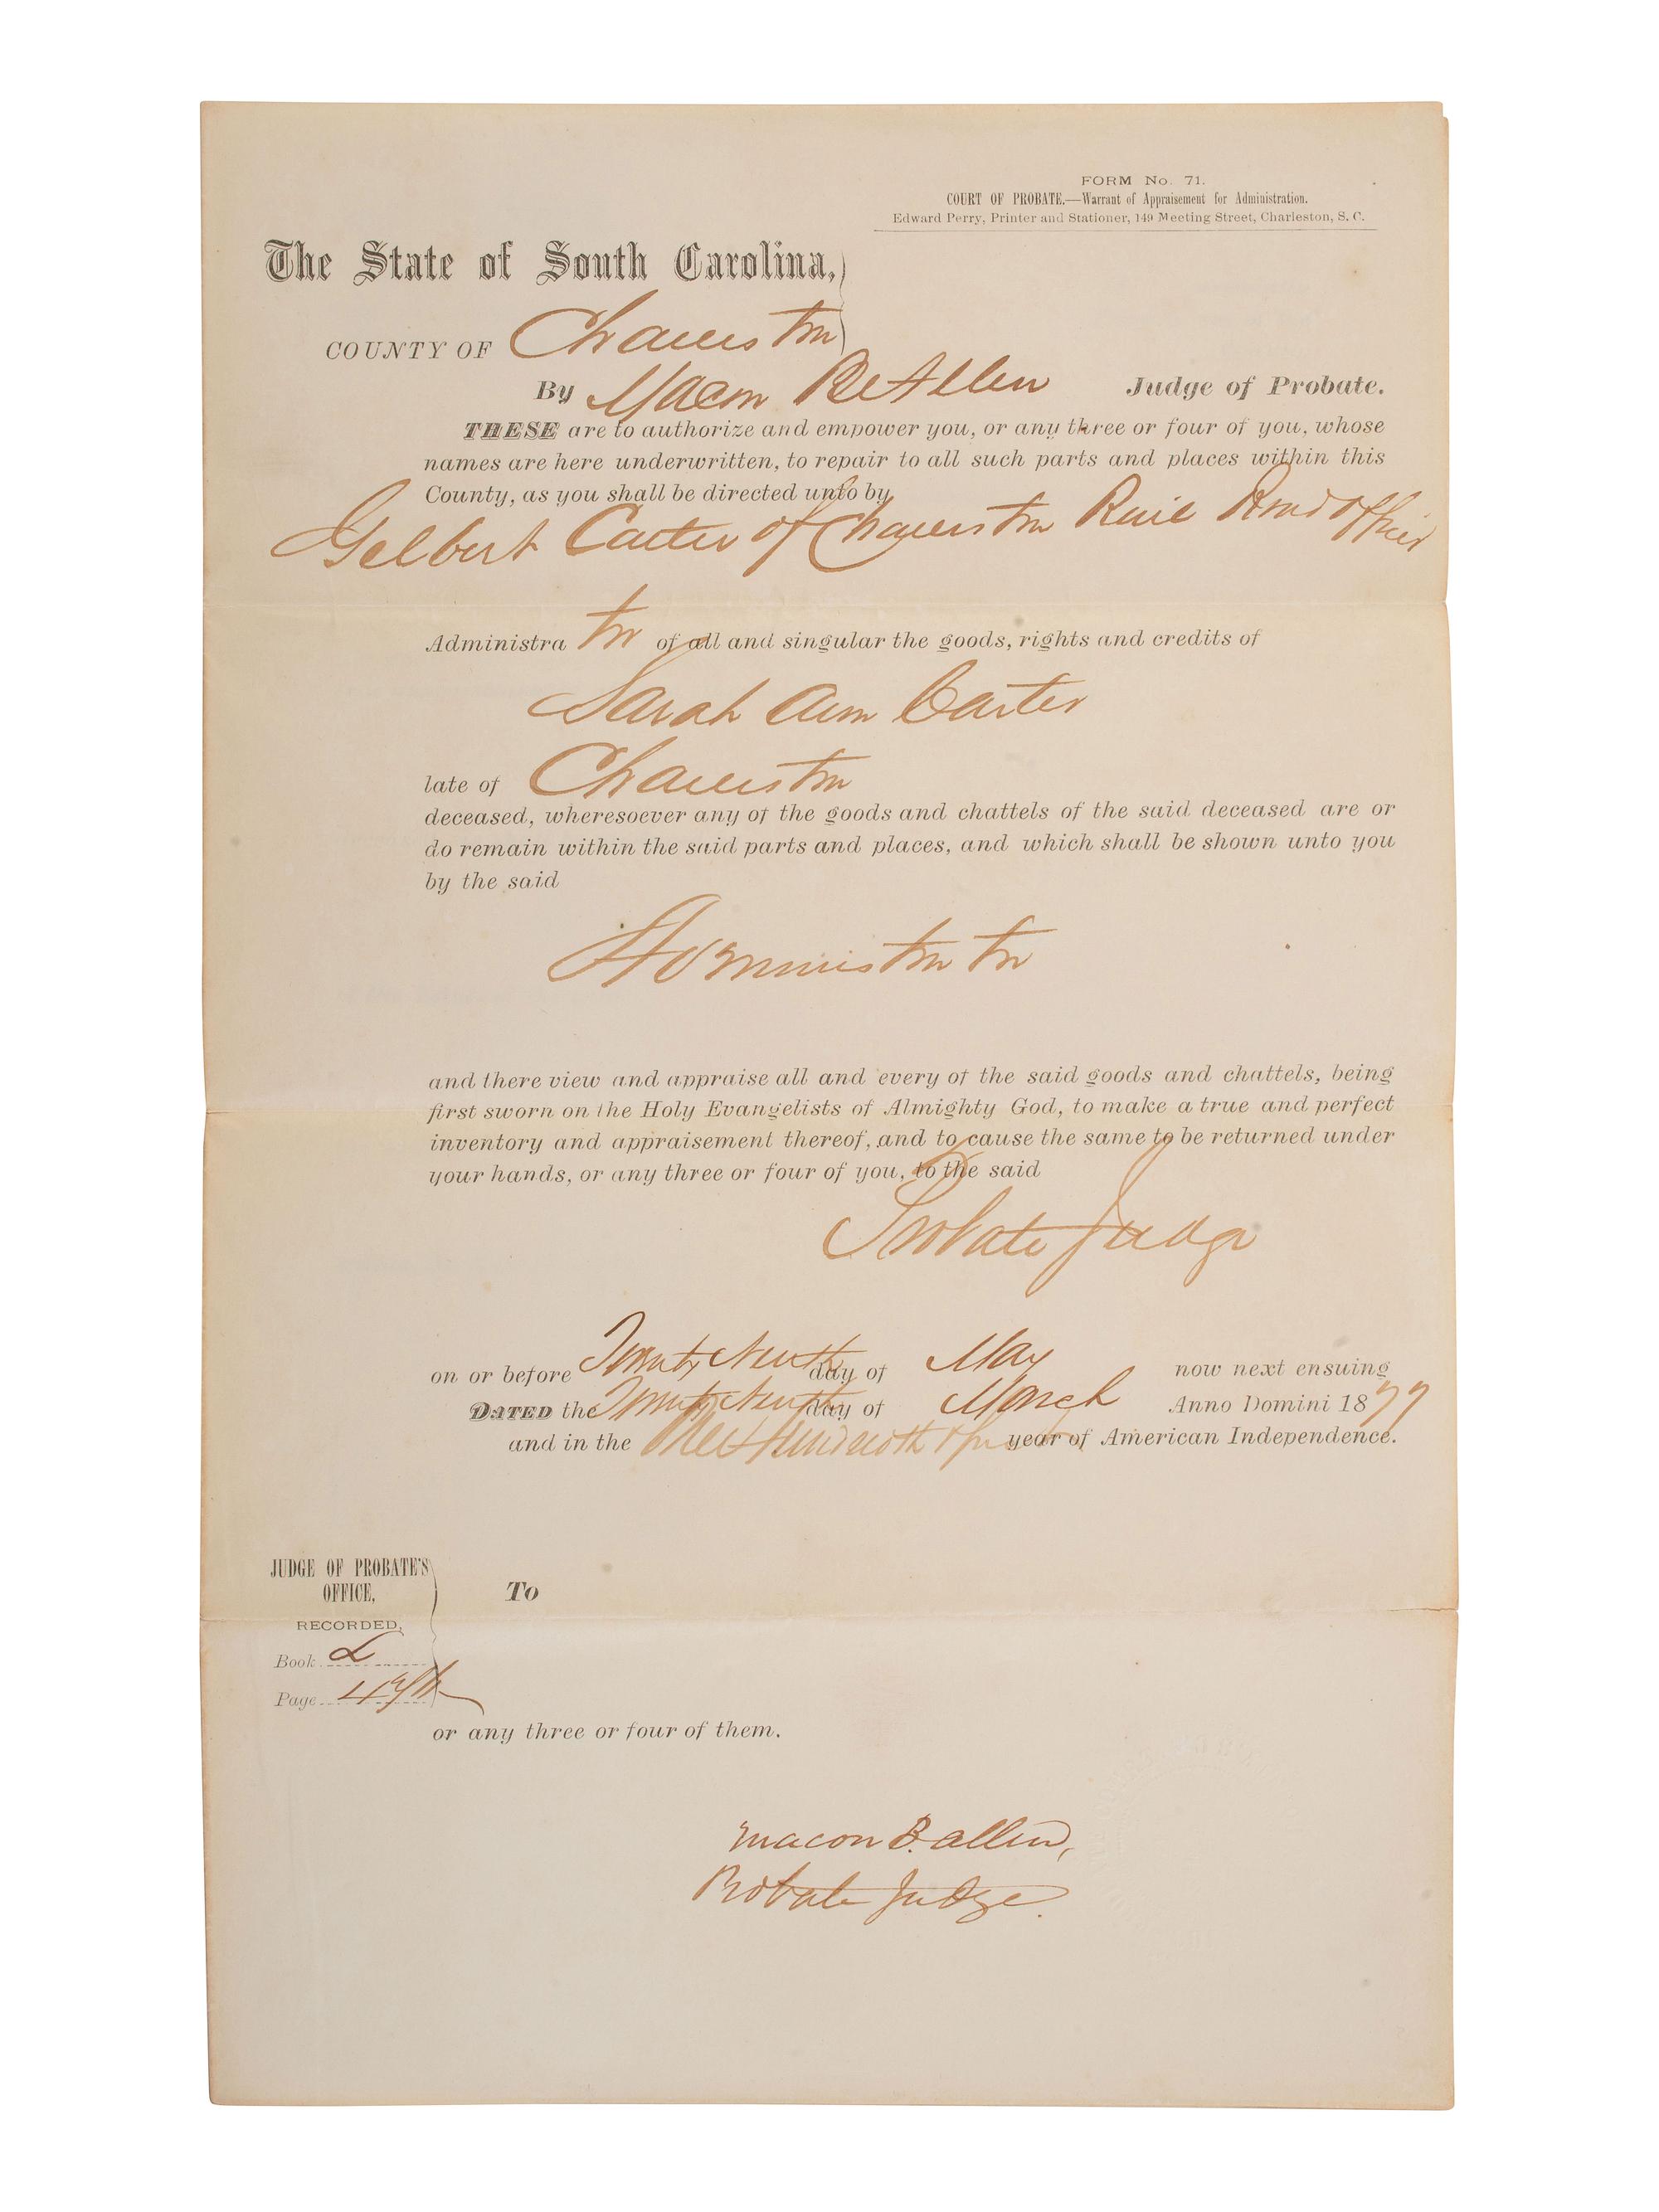 FORM No. 71.
COURT OF PROBATE.—Warrant of Appraisement for Administration.
Edward Perry, Printer and Stationer, 149 Meeting Street, Charleston, S. C.
The State of South Carolina,
COUNTY OF Charleston
By Macon B Allen Judge of Probate.
THESE are to authorize and empower you, or any three or four of you, whose
names are here underwritten, to repair to all such parts and places within this
County, as you shall be directed unto by
Gelbert Carter of Charleston Rail Road
Administrator of all and singular the goods, rights and credits of
Sarah Ann Carter
late of Charleston
deceased, wheresoever any of the goods and chattels of the said deceased are or
do remain within the said parts and places, and which shall be shown unto you
by the said
Administrator
and there view and appraise all and every of the said goods and chattels, being
first sworn on the Holy Evangelists of Almighty God, to make a true and perfect
inventory and appraisement thereof, and to cause the same to be returned under
your hands, or any three or four of you, to the said
Probate Judge
on or before Twenty Ninth day of May now next ensuing
DATED the Twenty Ninth day of March Anno Domini 1877
and in the One Hundredth year of American Independence.
JUDGE OF PROBATE'S
OFFICE,
To
RECORDED,
Book L
Page
or any three or four of them.
Macon B. Allen,
Probate Judge.